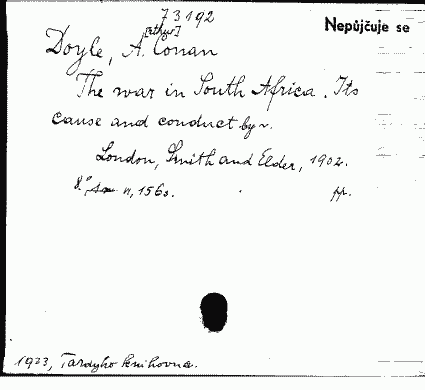 73192
Nepůjčuje se
[rthur]
Doyle, A. Conan
The war in South Africa. Its
cause and conduct by ~.
London, Smith and Elder, 1902.
8°, n, 156 s. pp.
1923, Tardyho knihovna.